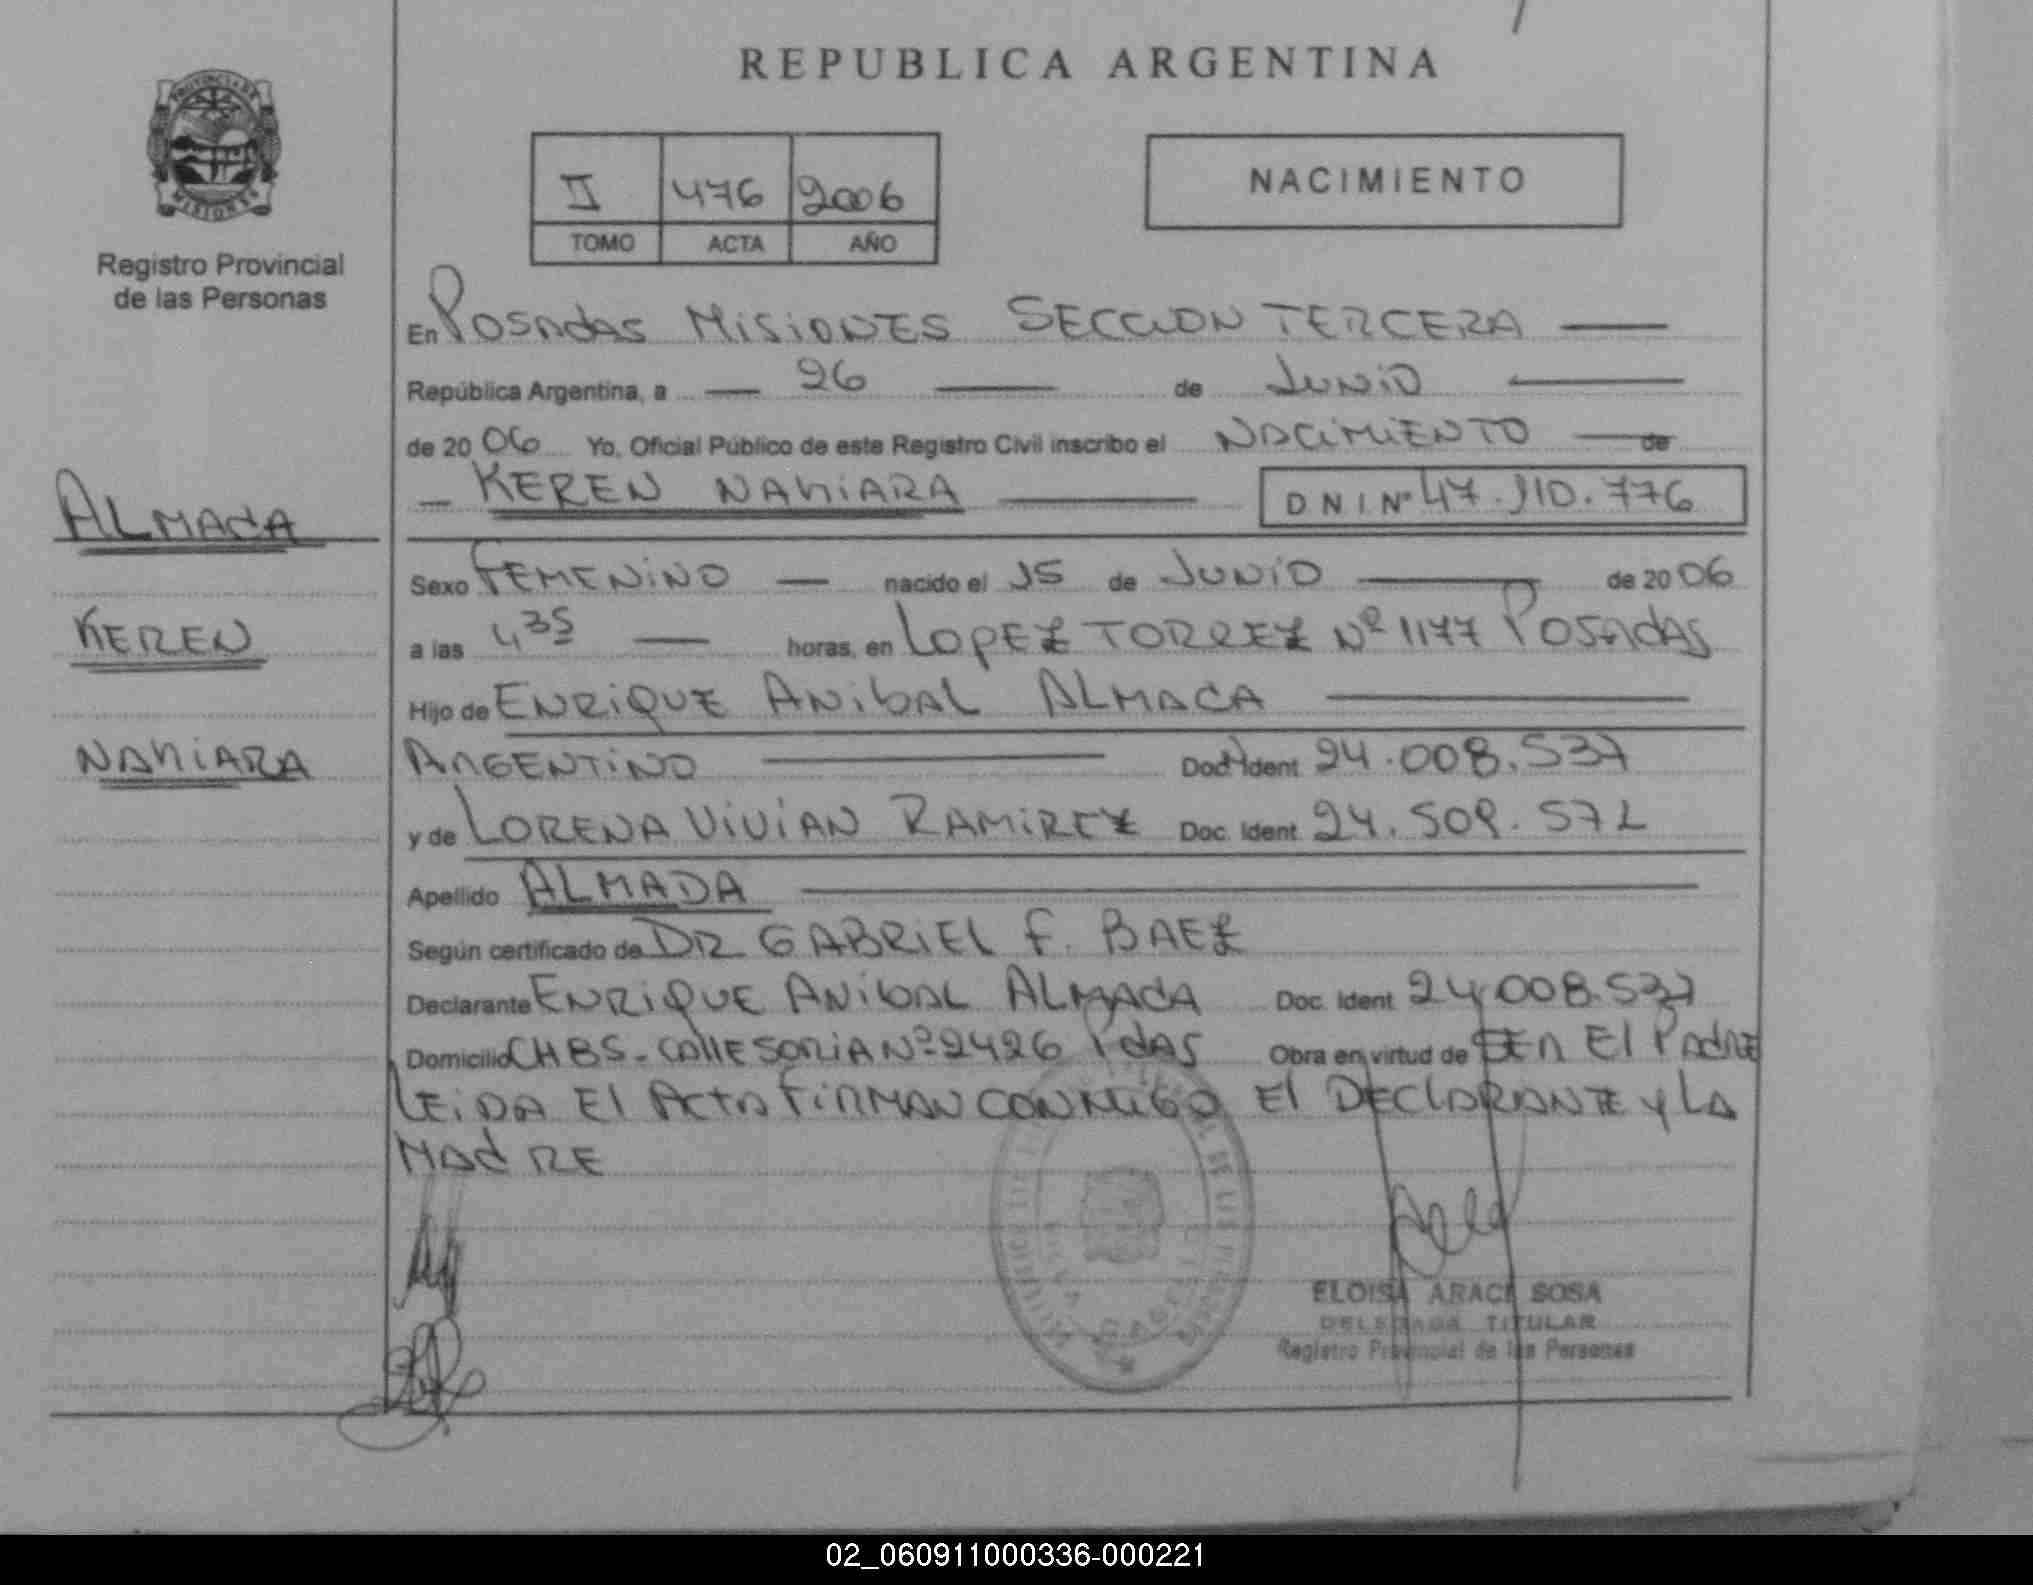 REPUBLICA ARGENTINA
PROVINCIA DE
MISIONES
Registro Provincial
de las Personas
II 476 2006
TOMO ACTA AÑO
NACIMIENTO
En POSAdAS MISIONES SECCION TERCERA
República Argentina, a 26 de JUNIO
de 20 06 Yo, Oficial Público de este Registro Civil inscribo el NACIMIENTO de
KEREN NAHIARA D N I. Nº 47.110.776
ALMADA
KEREN
NAHIARA
Sexo FEMENINO nacido el 15 de JUNIO de 20 06
a las 4 35 horas, en LOPEZ TORREZ Nº 1177 POSAdAS
Hijo de ENRIQUE ANIBAL ALMADA
ARGENTINO Doc. Ident 24.008.537
y de LORENA VIVIAN RAMIREZ Doc. Ident 24.509.572
Apellido ALMADA
Según certificado de DR GABRIEL F. BAEZ
Declarante ENRIQUE ANIBAL ALMADA Doc. Ident 24.008.537
Domicilio CH 85 - CAllE SORIA Nº 2426 PdAS Obra en virtud de SER El PAdRE
LEIDA El ACTA FIRMAN CONMIGO El DECLARANTE y LA
MAdRE
ELOISA ARACI SOSA
DELEGADA TITULAR
Registro Provincial de las Personas
02_060911000336-000221